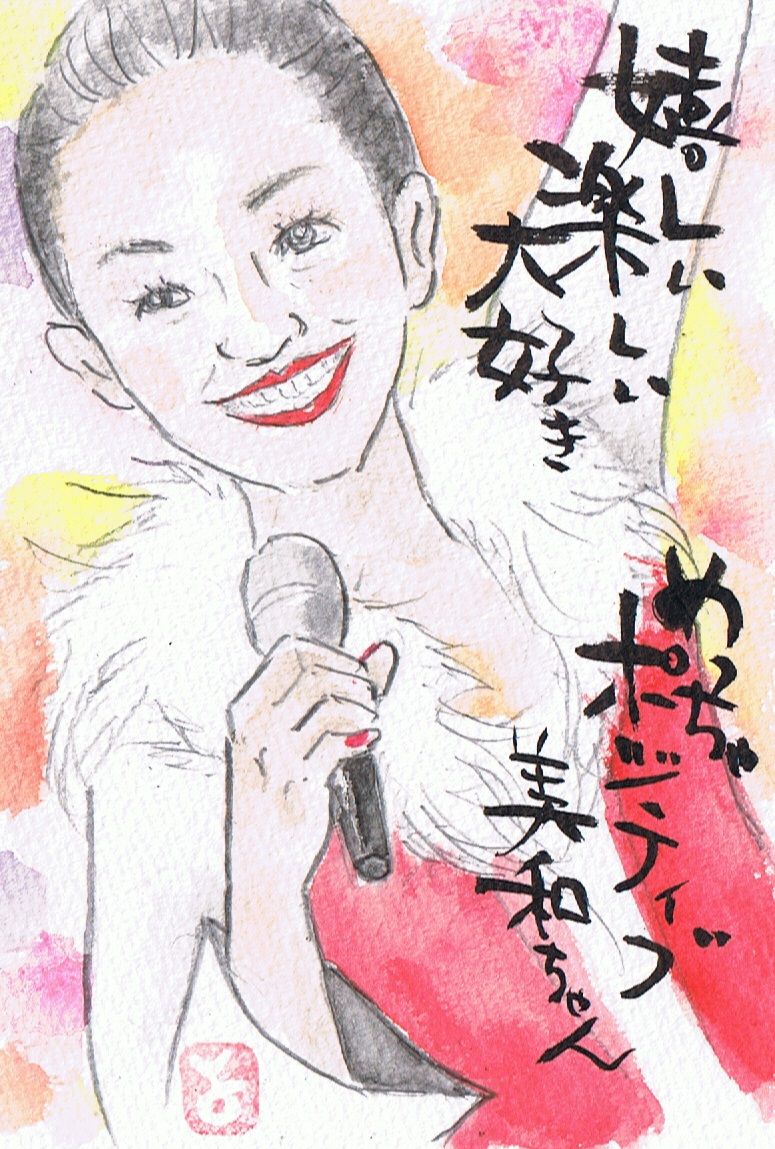 嬉しい
楽しい
大好き
めっちゃ
ポジティブ
美和ちゃん
よ